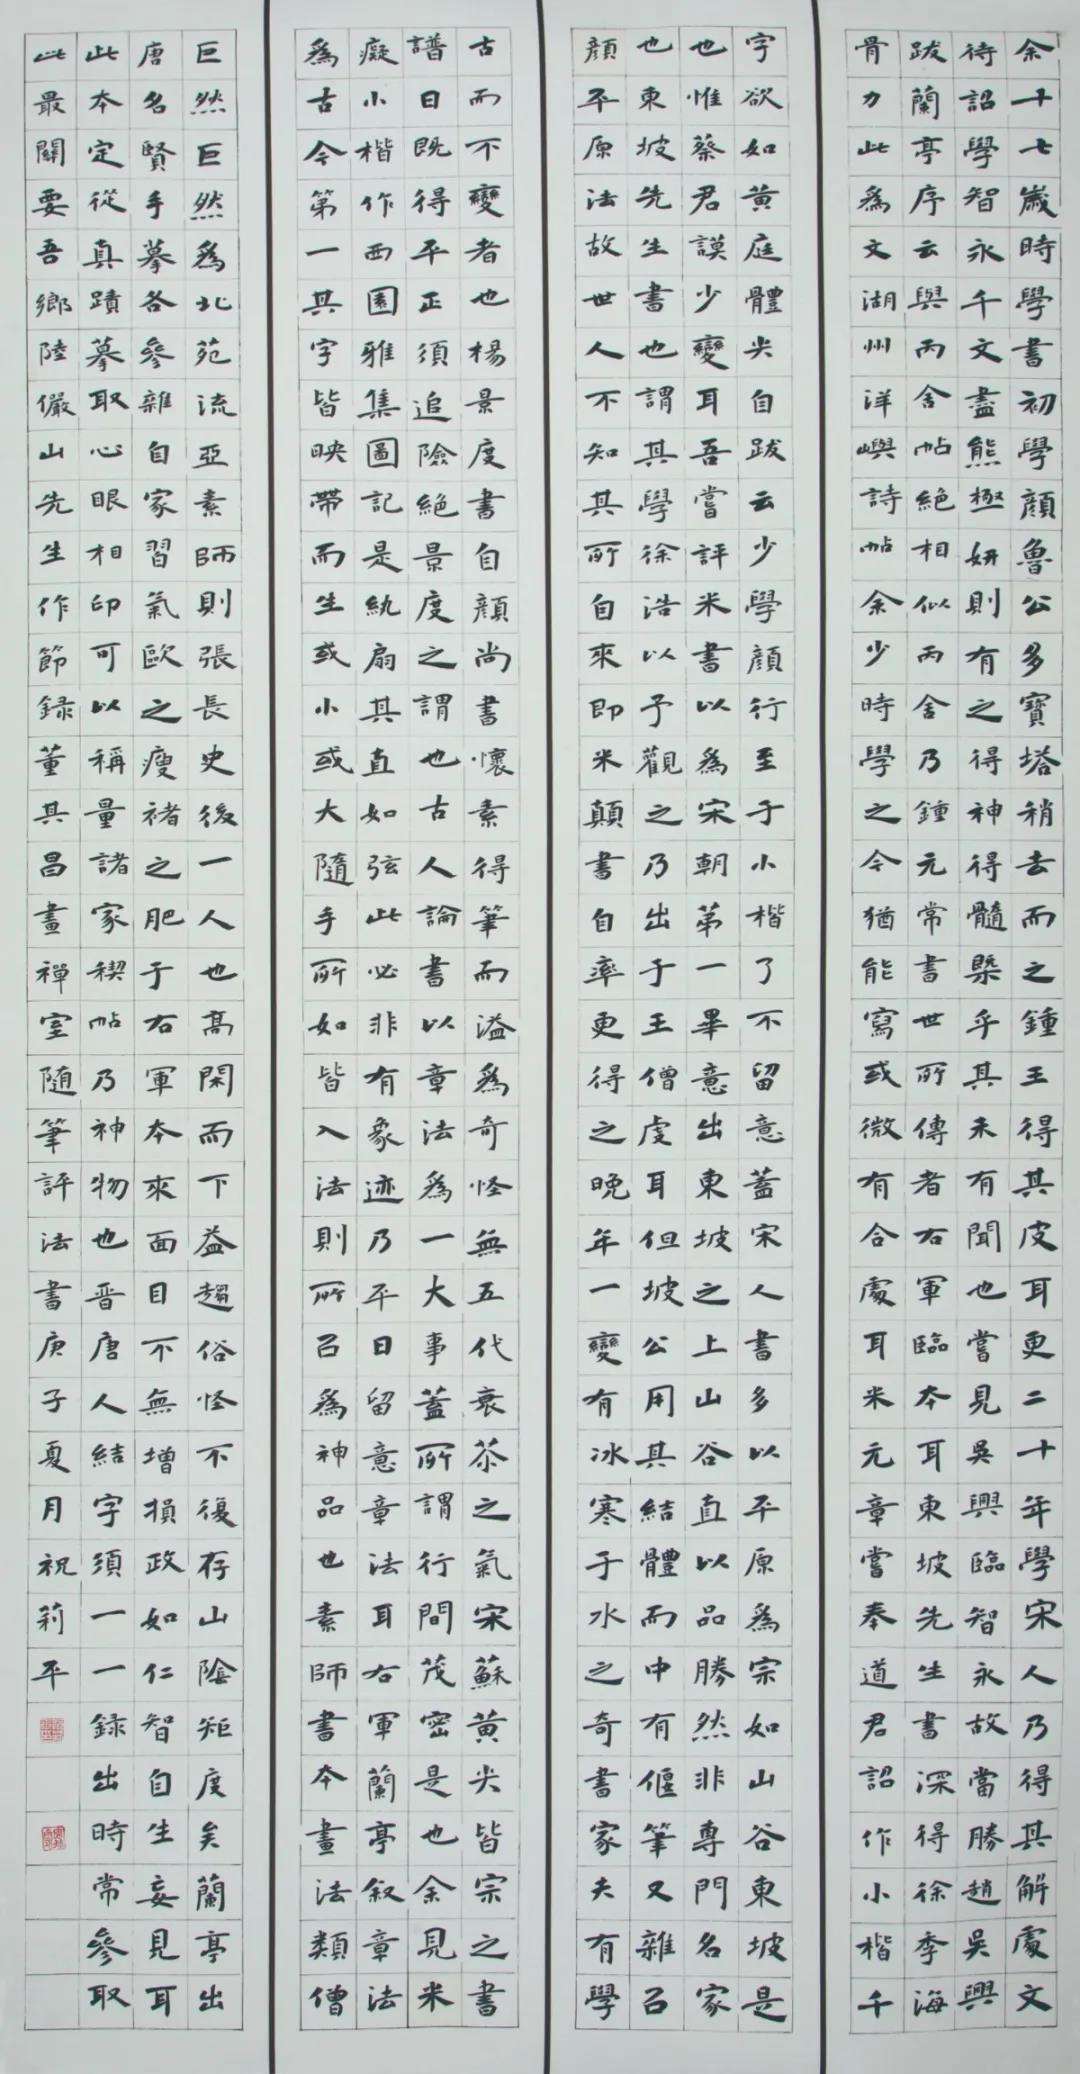 余十七歲時學書初學顏魯公多寶塔稍去而之鍾王得其皮耳更二十年學宋人乃得其解處文
待詔學智永千文盡態極妍則有之得神得髓槩乎其未有聞也嘗見吳興臨智永故當勝趙吳興
跋蘭亭序云與丙舍帖絕相似丙舍乃鍾元常書世所傳者右軍臨本耳東坡先生書深得徐季海
骨力此為文湖州洋嶼詩帖余少時學之今猶能寫或微有合處耳米元章嘗奉道君詔作小楷千
字欲如黃庭體尖自跋云少學顏行至于小楷了不留意蓋宋人書多以平原為宗如山谷東坡是
也惟蔡君謨少變耳吾嘗評米書以為宋朝第一畢意出東坡之上山谷直以品勝然非專門名家
也東坡先生書也謂其學徐浩以予觀之乃出于王僧虔耳但坡公用其結體而中有偃筆又雜召
顏平原法故世人不知其所自來即米顛書自率更得之晚年一變有冰寒于水之奇書家夫有學
古而不變者也楊景度書自顏尚書懷素得筆而溢為奇怪無五代衰苶之氣宋蘇黃尖皆宗之書
譜曰既得平正須追險絕景度之謂也古人論書以章法為一大事蓋所謂行間茂密是也余見米
癡小楷作西園雅集圖記是紈扇其直如弦此必非有象迹乃平日留意章法耳右軍蘭亭敘章法
為古今第一其字皆映帶而生或小或大隨手所如皆入法則所召為神品也素師書本畫法類僧
巨然巨然為北苑流亞素師則張長史後一人也高閑而下益趨俗怪不復存山陰矩度矣蘭亭出
唐名賢手摹各參雜自家習氣歐之瘦褚之肥于右軍本來面目不無增損政如仁智自生妄見耳
此本定從真蹟摹取心眼相印可以稱量諸家禊帖乃神物也晉唐人結字須一一錄出時常參取
此最關要吾鄉陸儼山先生作節錄董其昌畫禪室隨筆評法書庚子夏月祝莉平